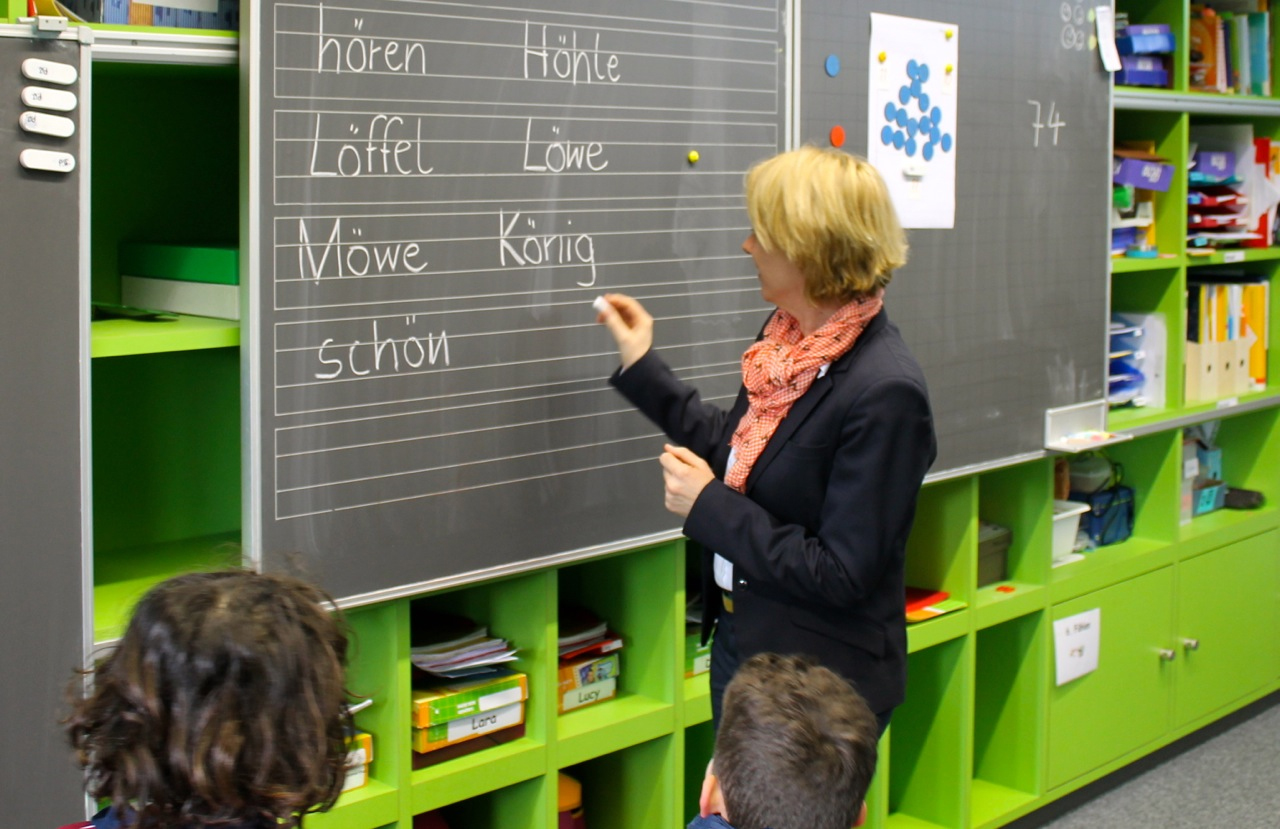 hören Höhle
Löffel Löwe
Möwe König
schön
74
Lara
Lucy